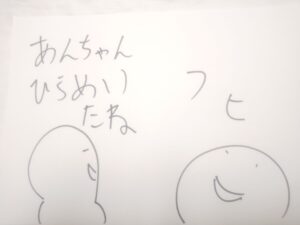 あんちゃん
ひらめい
たね
フヒ